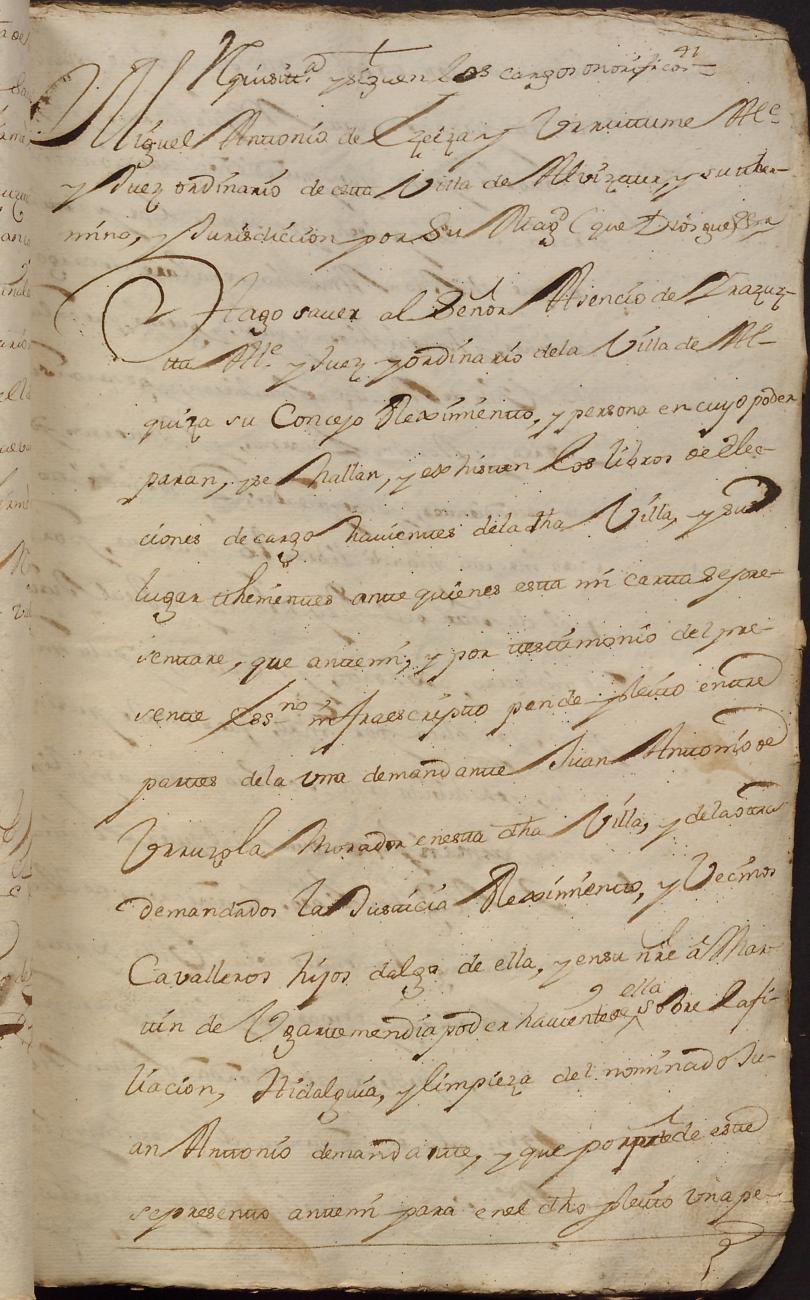 Rquisitta. y siguen los cargos onorificos 41
Miguel Antonio de Yzeiza y Vrruttume Alce.
y Juez ordinario de esta Villa de Alvizttur, y su ther-
mino, y Jurisdicion por Su Magd. (que Dios gue) &a
Hago saver al Señor Asencio de Yrazuz-
tta Alle. y Juez y ordinario dela Villa de Al-
quiza su Concejo Reximiento, y persona en cuyo poder
paran, y se hallan, y exhisten los libros de Elec-
ciones de cargo havientes dela dha Villa, y sus
lugar thenientes ante quienes esta mi carta se pre-
sentare, que antemi, y por testimonio del pre-
sente Essno. infraescripto pende pleito entre
partes dela una demandante Juan Antonio de
Vrruzola Morador en esta dha Villa, y dela otra
demandados la Justicia Reximiento, y Vecinos
Cavalleros hijos dalgo de ella, y en su nre â Mar-
tin de Vgartemendia poder haviente de ella sobre la fi-
liacion, Hidalguia, y limpieza del nominado Ju-
an Antonio demandante, y que por parte de este
se presento antemi para en el dho pleito una pe-